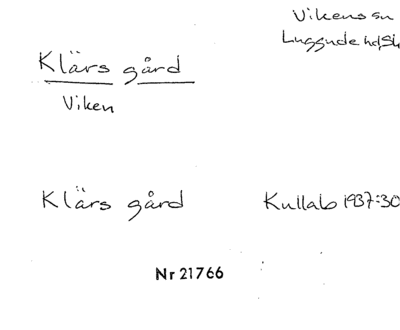 Vikens sn
Luggude hd, Sk
Klärs gård
Viken
Klärs gård Kullab 1937:30
Nr 21766